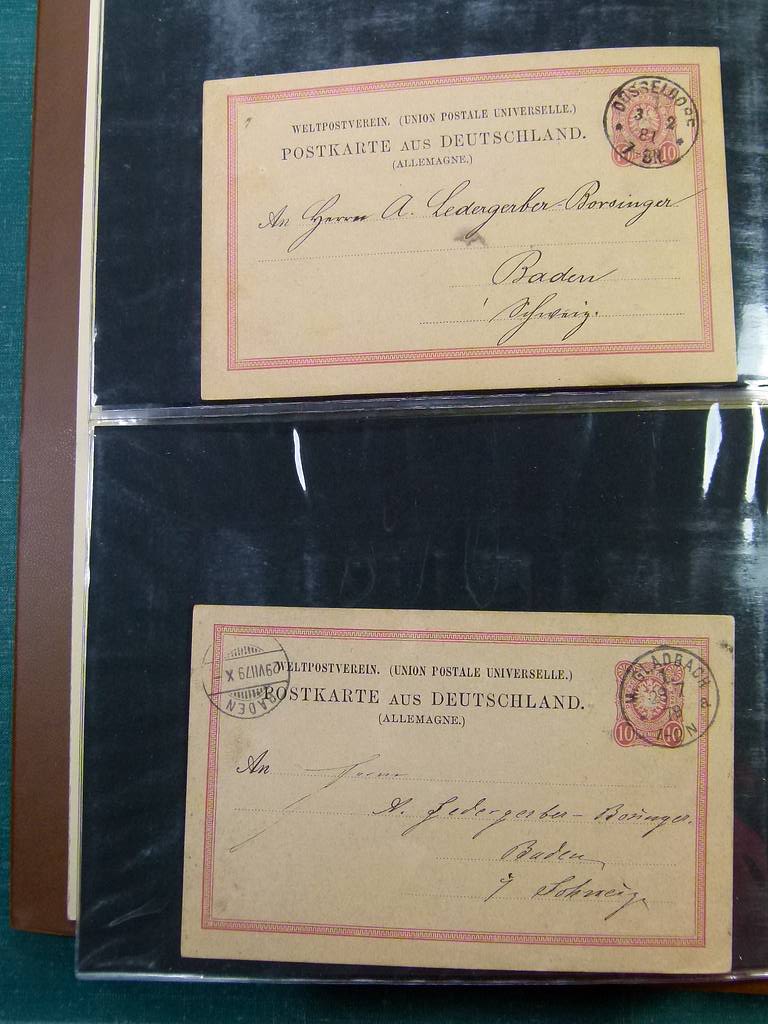 WELTPOSTVEREIN. (UNION POSTALE UNIVERSELLE.)
POSTKARTE AUS DEUTSCHLAND.
(ALLEMAGNE.)
DÜSSELDORF
3 2
81
10 10
An Herrn A. Ledergerber-Borsinger
Baden
Schweiz.
BADEN
29 VII 79 X
WELTPOSTVEREIN. (UNION POSTALE UNIVERSELLE.)
POSTKARTE AUS DEUTSCHLAND.
(ALLEMAGNE.)
M. GLADBACH
10
An Herrn
A. Ledergerber-Borsinger.
Baden
Schweiz.